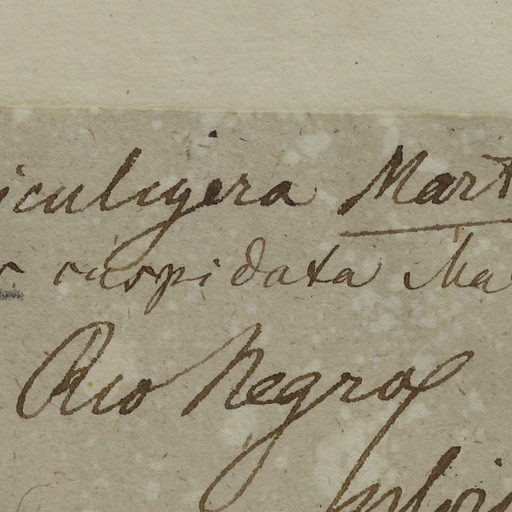 iculigera Mart
cuspidata Ma
Rio Negro